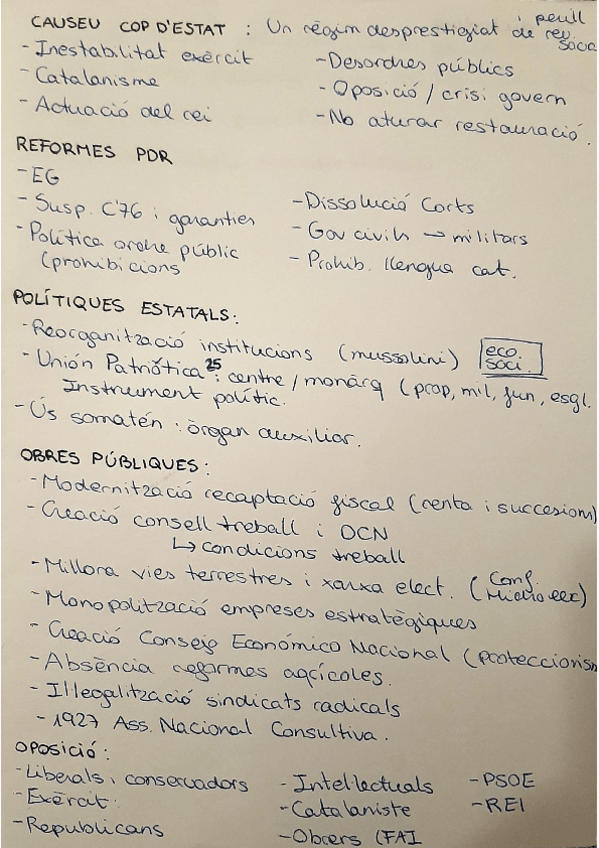 CAUSEU COP D'ESTAT : Un règim desprestigiat i perill de rev. socia
- Inestabilitat exèrcit
- Catalanisme
- Actuació del rei
- Desordres públics
- Oposició / crisi govern
- No aturar restauració.
REFORMES PDR
- EG
- Susp. C'76 i garanties
- Política ordre públic
(prohibicions
- Dissolució Corts
- Gov civils → militars
- Prohib. llengua cat.
POLÍTIQUES ESTATALS:
- Reorganització institucions (mussolini) eco. soci.
- Unión Patriótica 25 : centre / monàrq (prop, mil, fun, esgl.
Instrument polític.
- Ús somatén : òrgan auxiliar.
OBRES PÚBLIQUES:
- Modernització recaptació fiscal (renta i succesions)
- Creació consell treball i OCN
↳ condicions treball
- Millora vies terrestres i xarxa elect. (Conf. Hidro eec)
- Monopolització empreses estratègiques
- Creació Consejo Económico Nacional (proteccionism
- Absència reformes agrícoles.
- Illegalització sindicats radicals
- 1927 Ass. Nacional Consultiva.
OPOSICIÓ:
- Liberals i conservadors
- Exèrcit
- Republicans
- Intellectuals
- Catalaniste
- Obrers (FAI
- PSOE
- REI